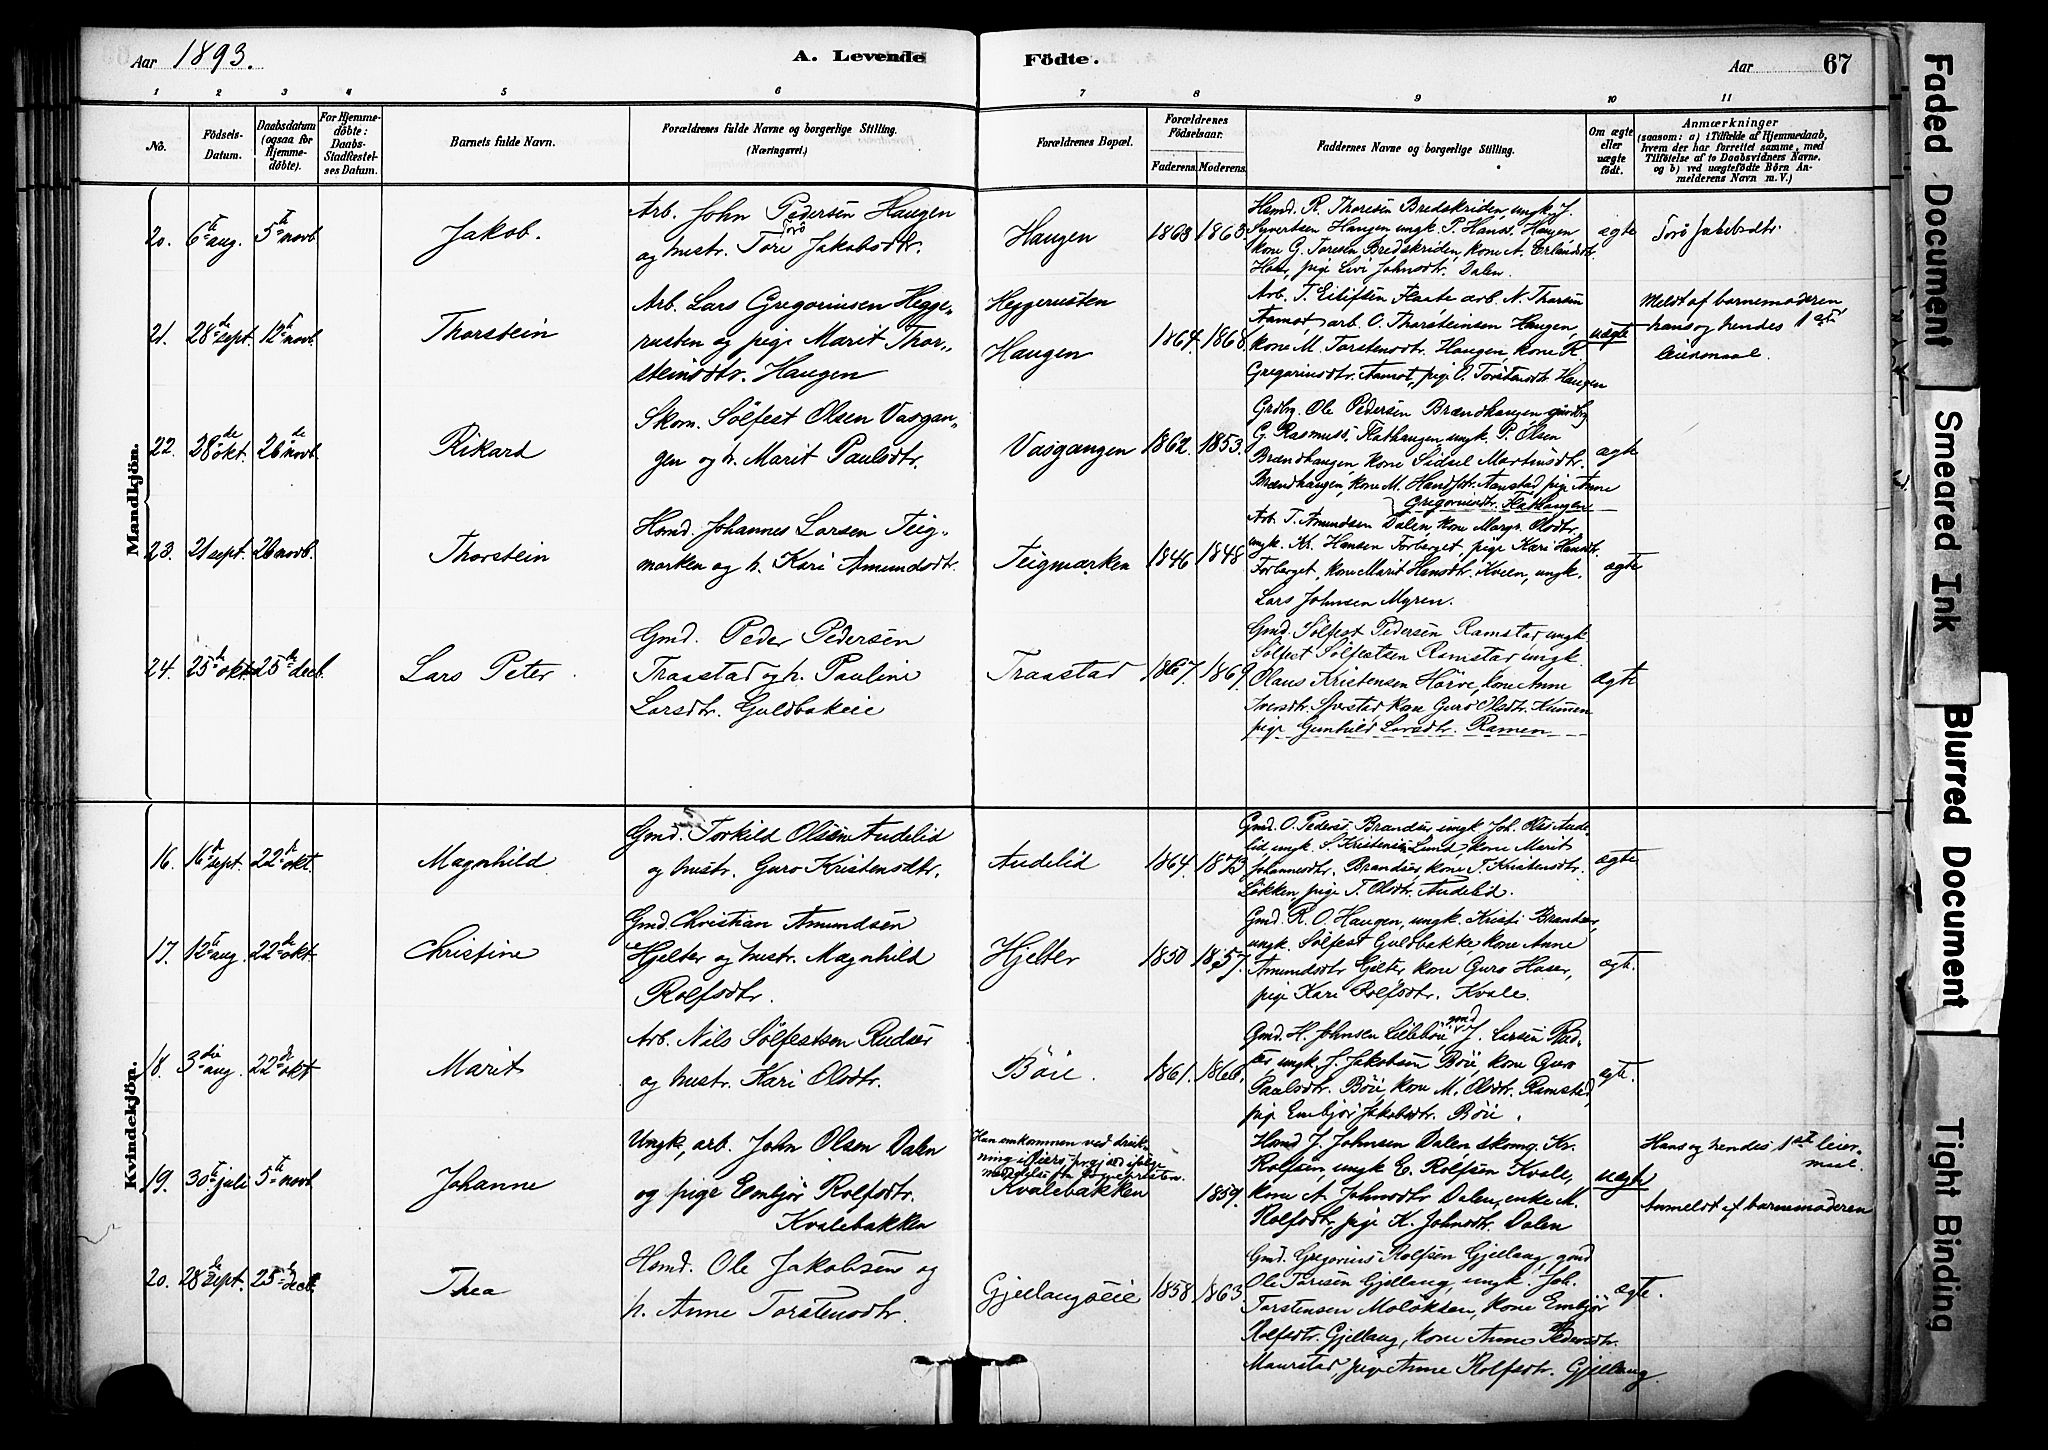 Aar 1893. A. Levende Födte. Aar 67
1 2 3 4 5 6 7 8 9 10 11
No. Födsels-Datum. Daabsdatum (ogsaa for Hjemmedöbte). For Hjemmedöbte: Daabs-Stadfæstelses Datum. Barnets fulde Navn. Forældrenes fulde Navne og borgerlige Stilling. (Næringsvei.) Forældrenes Bopæl. Forældrenes Födselsaar. Faderens. Moderens. Faddernes Navne og borgerlige Stilling. Om ægte eller uægte födt. Anmærkninger (saasom: a) i Tilfælde af Hjemmedaab, hvem der har forrettet samme, med Tilföielse af to Daabsvidners Navne. og b) ved uægtefödte Börn Anmelderens Navn m. V.)
Mandkjön.
20. 6te aug. 5te novb Jakob.
Arb. John Pedersen Haugen
Torö
og hustr. Tore Jakobsdtr.
Haugen 1863 1863.
Hsmd. R. Thoresen Bredskriden, ungk. J.
Syvertsen Haugen ungk. P. Hans. Haugen
kone G. Toresen Bredskriden, kone A. Erlandsdtr.
Haar, pige Livi Johnsdtr. Dalen.
ægte Torö Jakobsdtr.
21. 28de sept. 12te novb. Thorstein
Arb. Lars Gregoriusen Hegge-
rusten og pige Marit Thor-
steinsdtr. Haugen
Heggerusten
Haugen
1864. 1868.
Arb. T. Eilifsen Flaate arb. N. Thorsen
Aamot, arb. O. Thorsteinsen Haugen,
kone M. Torstensdtr. Haugen, kone R.
Gregoriusdtr. Aamot, pige O. Torstensdtr. Haugen
uægte
Meldt af barnemoderen
hans og hendes 1ste
leiermaal.
22. 28de okt. 26de novb. Rikard
Skom. Sölfest Olsen Vasgan-
gen og h. Marit Paulsdtr.
Vasgangen 1862. 1853.
Grdbg. Ole Pedersen Brændhaugen grdbg
G. Rasmuss. Flathaugen ungk. P. Olsen
Brændhaugen kone Sidsel Martinsdtr.
Brændhaugen, kone M. Hansdtr. Aanstad, pige Anne
Gregoriusdtr. Flathaugen
ægte
23. 21 sept. 26 novb. Thorstein
Hsmd. Johannes Larsen Teig-
marken og h. Kari Amundsdtr.
Teigmarken 1846 1848
Arb. T. Amundsen Dalen, kone Margr. Olsdtr.
ungk. Kr. Hansen Forberget, pige Kari Hansdtr.
Forberget, kone Marit Hansdtr. Kveen, ungk.
Lars Johnsen Myren.
ægte
24. 25de okt. 25de decb. Lars Peter
Gmd. Peder Pedersen
Traastad og h. Pauline
Larsdtr. Guldbakeie
Traastad 1867. 1869.
Gmd. Sölfest Pedersen Ramstad ungk.
Sölfest Sölfestsen Ramstad ungk.
Olaus Kristensen Hörve, kone Anne
Iversdtr. Sperstad kone Guro Olsdtr. Kummen
pige Gunhild Larsdtr. Ramen
ægte
Kvindekjön.
16. 16de sept. 22de okt. Magnhild
Gmd. Torkild Olsen Andelid
og hustr. Guro Kristensdtr.
Andelid 1864. 1873
Gmd. O. Peders. Brandsær ungk. Joh. Olss. Ande-
lid ungk. S. Kristensen Lund, kone Marit
Johannesdtr. Brandsær, kone T. Kristensdtr.
Lökken pige T. Olsdtr. Andelid.
ægte
17. 12te aug. 22de okt. Christine
Gmd. Christian Amundsen
Hjelter og hustr. Magnhild
Rolfsdtr.
Hjelter 1850 1857.
Gmd. R. O. Haugen, ungk. Kristi Brandsær,
ungk. Sölfest Guldbakke, kone Anne
Amundsdtr Gjelter kone Guro Haser,
pige Kari Rolfsdtr. Kvale.
ægte.
18. 3die aug. 22de okt Marit
Arb. Nils Sölfestsen Rudsær
og hustr. Kari Olsdtr.
Böie. 1861. 1866.
Gmd. H. Johnsen Lilleböie, gmd J. Larsen Rud-
sær, ungk. J. Jakobsen Böie, kone Guro
Paulsdtr. Böie, kone M. Olsdtr. Ramstad,
pige Embjör Jakobsdtr. Böie.
ægte.
19. 30te juli 5te novb Johanne
Ungk, arb. John Olsen Dalen
og pige Embjör Rolfsdtr.
Kvalebakken
Han omkommen ved druk-
ning i
meddelelse fra Sognepresten.
Kvalebakken
1859.
Hsmd J. Johnsen Dalen, skomg. Kr.
Rolfsen, ungk E. Rolfsen Kvale,
kone A. Johnsdtr Dalen, enke M.
Rolfsdtr, pige K. Johnsdtr. Dalen
uægte
Hans og hendes 1ste leier-
maal.
Anmeldt af barnemoderen
20. 28de sept. 25de decb. Thea
Hsmd. Ole Jakobsen og
h. Anne Torstensdtr.
Gjellangseie 1858 1863
Gmd. Gregorius Rolfsen Gjellang, gmd
Ole Toresen Gjellang, ungk. Joh.
Torstensen Moloksen, kone Embjör
Rolfsdtr. Gjellang, kone Anne Pedersdtr.
Maurstad, pige Anne Rolfsdtr. Gjellang.
ægte.
Faded Document
Smeared Ink
Blurred Document
Tight Binding